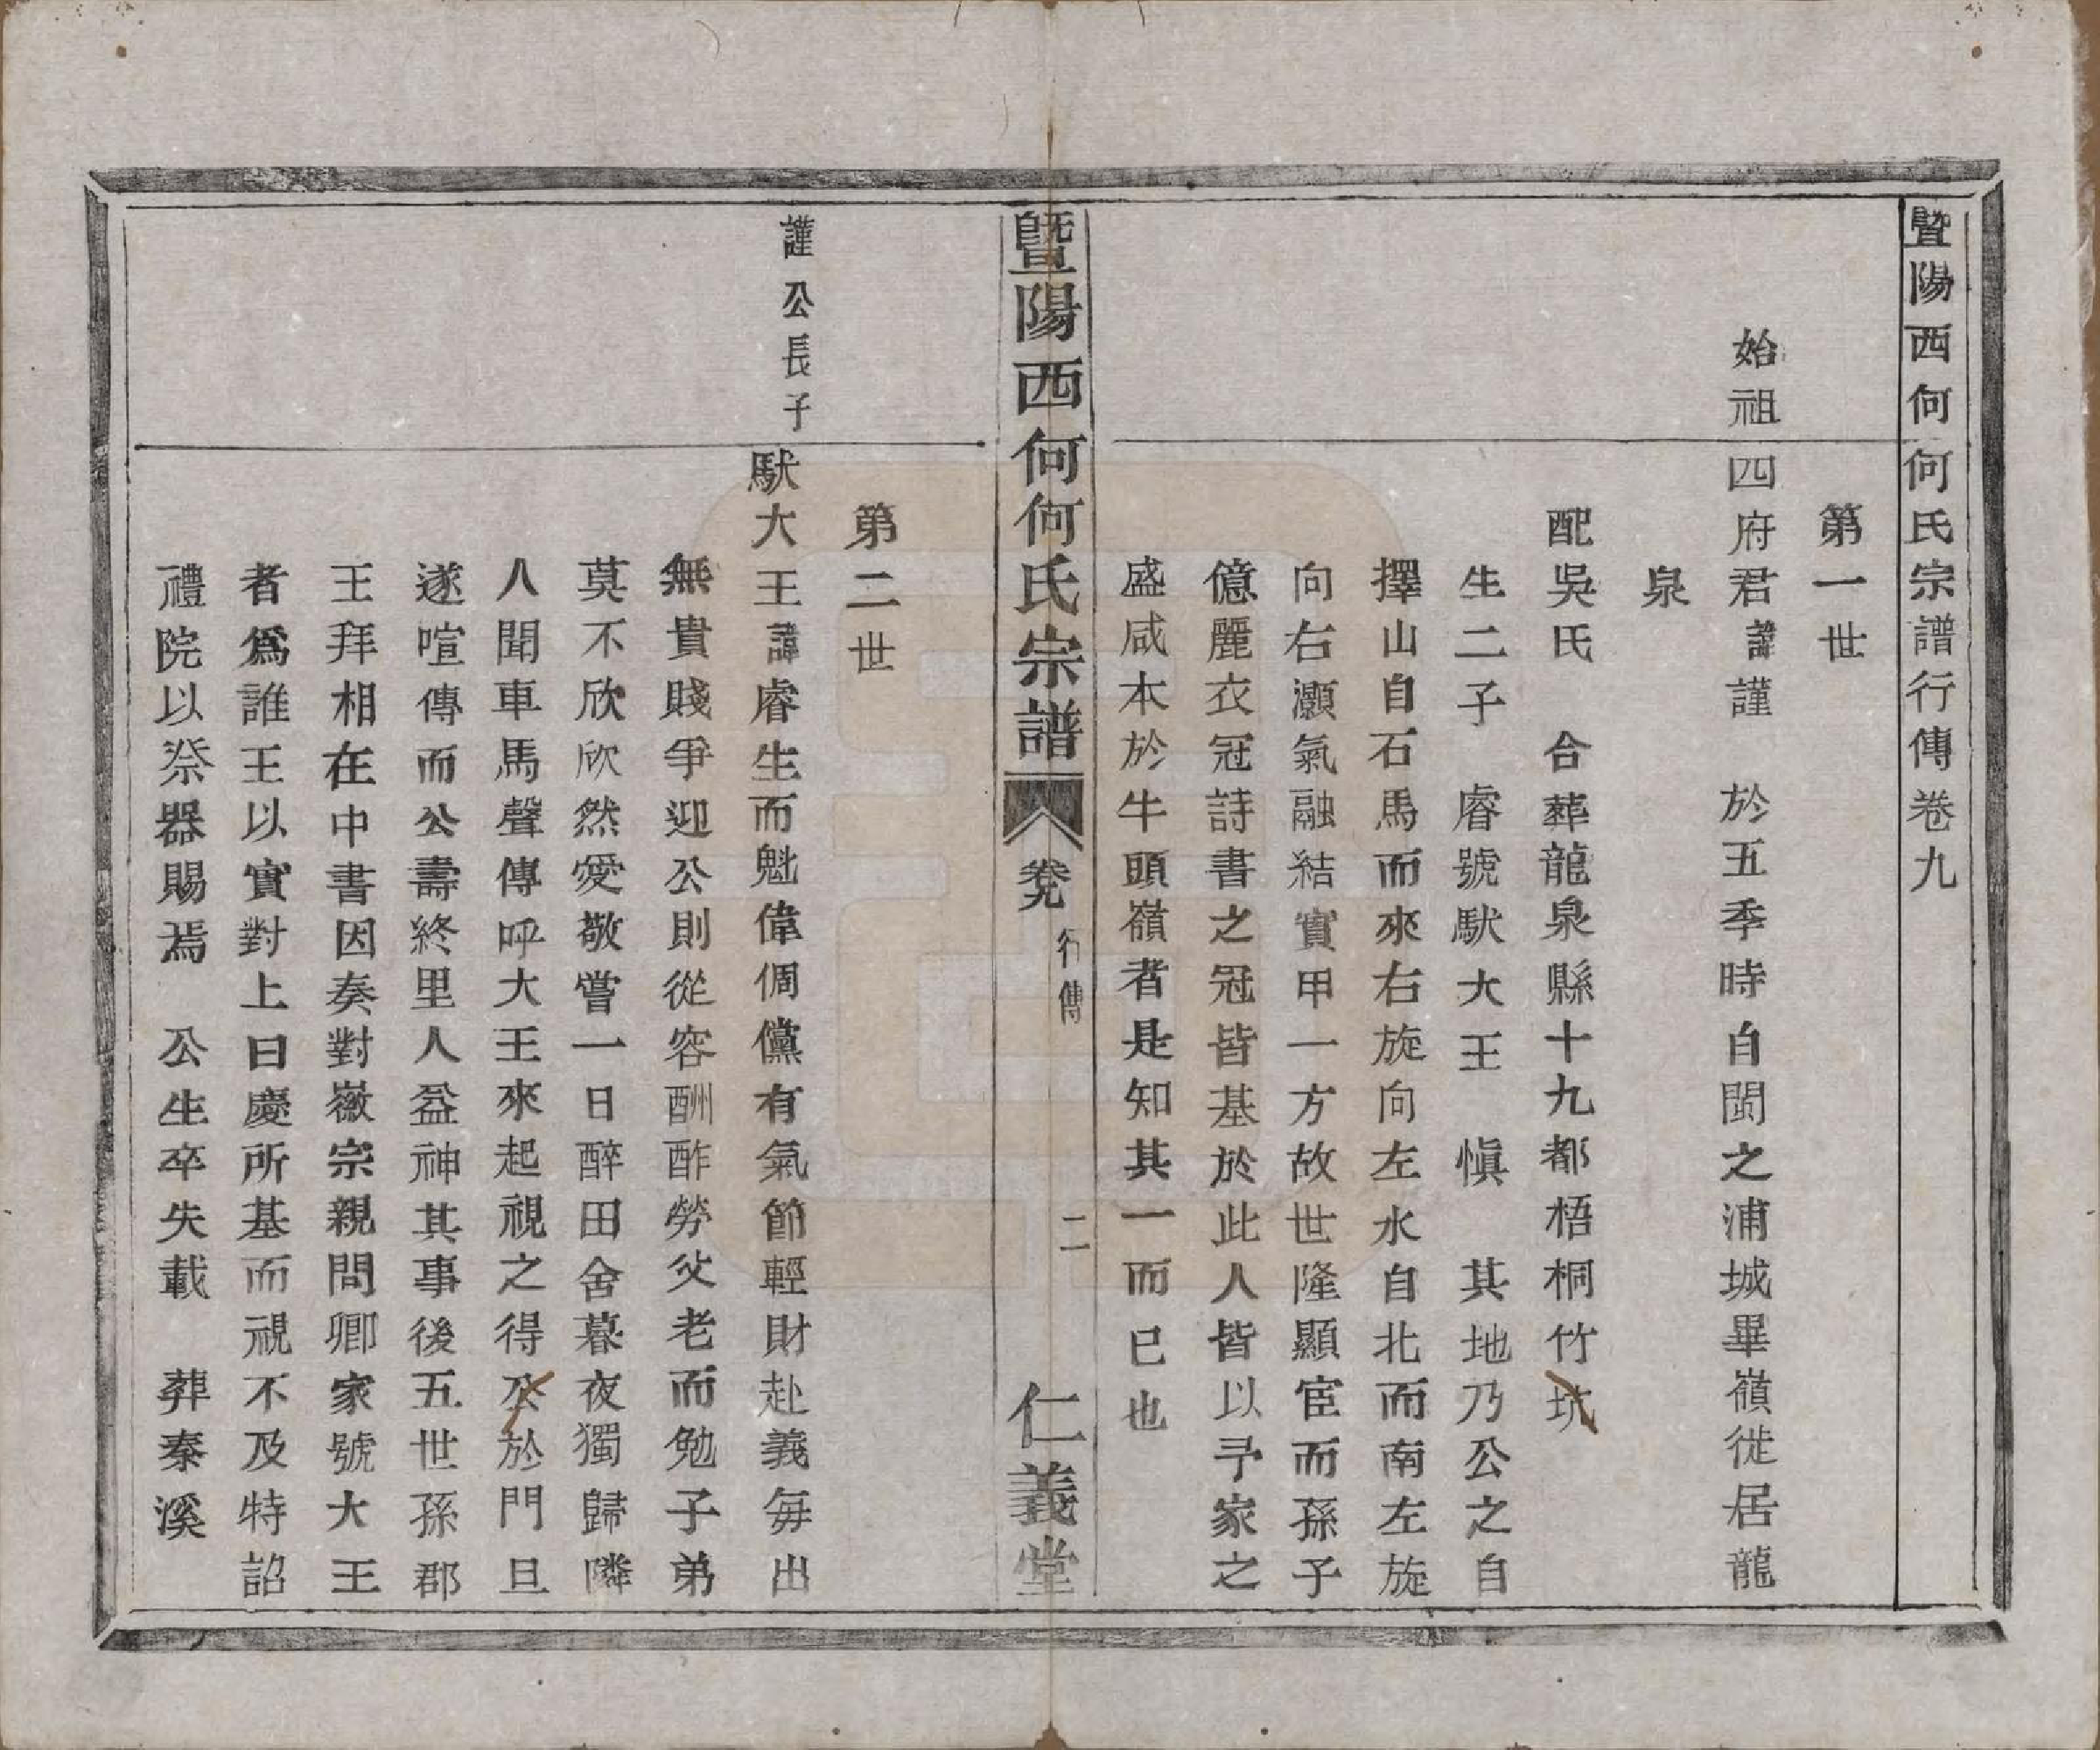 暨陽西何何氏宗譜行傳卷九
第一世
始祖四府君諱謹　於五季時自閩之浦城畢嶺徙居龍
泉
配吳氏　合葬龍泉縣十九都梧桐竹坑
生二子　睿號馱大王　慎　其地乃公之自
擇山自石馬而來右旋向左水自北而南左旋
向右灝氣融結實甲一方故世隆顯宦而孫子
億麗衣冠詩書之冠皆基於此人皆以予家之
盛咸本於牛頭嶺者是知其一而已也
暨陽西何何氏宗譜　卷九　行傳　二　仁義堂
第二世
謹公長子
馱大王諱睿生而魁偉倜儻有氣節輕財赴義每出
無貴賤爭迎公則從容酬酢勞父老而勉子弟
莫不欣欣然愛敬嘗一日醉田舍暮夜獨歸隣
人聞車馬聲傳呼大王來起視之得公於門旦
遂喧傳而公壽終里人益神其事後五世孫郡
王拜相在中書因奏對徽宗親問卿家號大王
者爲誰王以實對上曰慶所基而視不及特詔
禮院以祭器賜焉　公生卒失載　葬秦溪